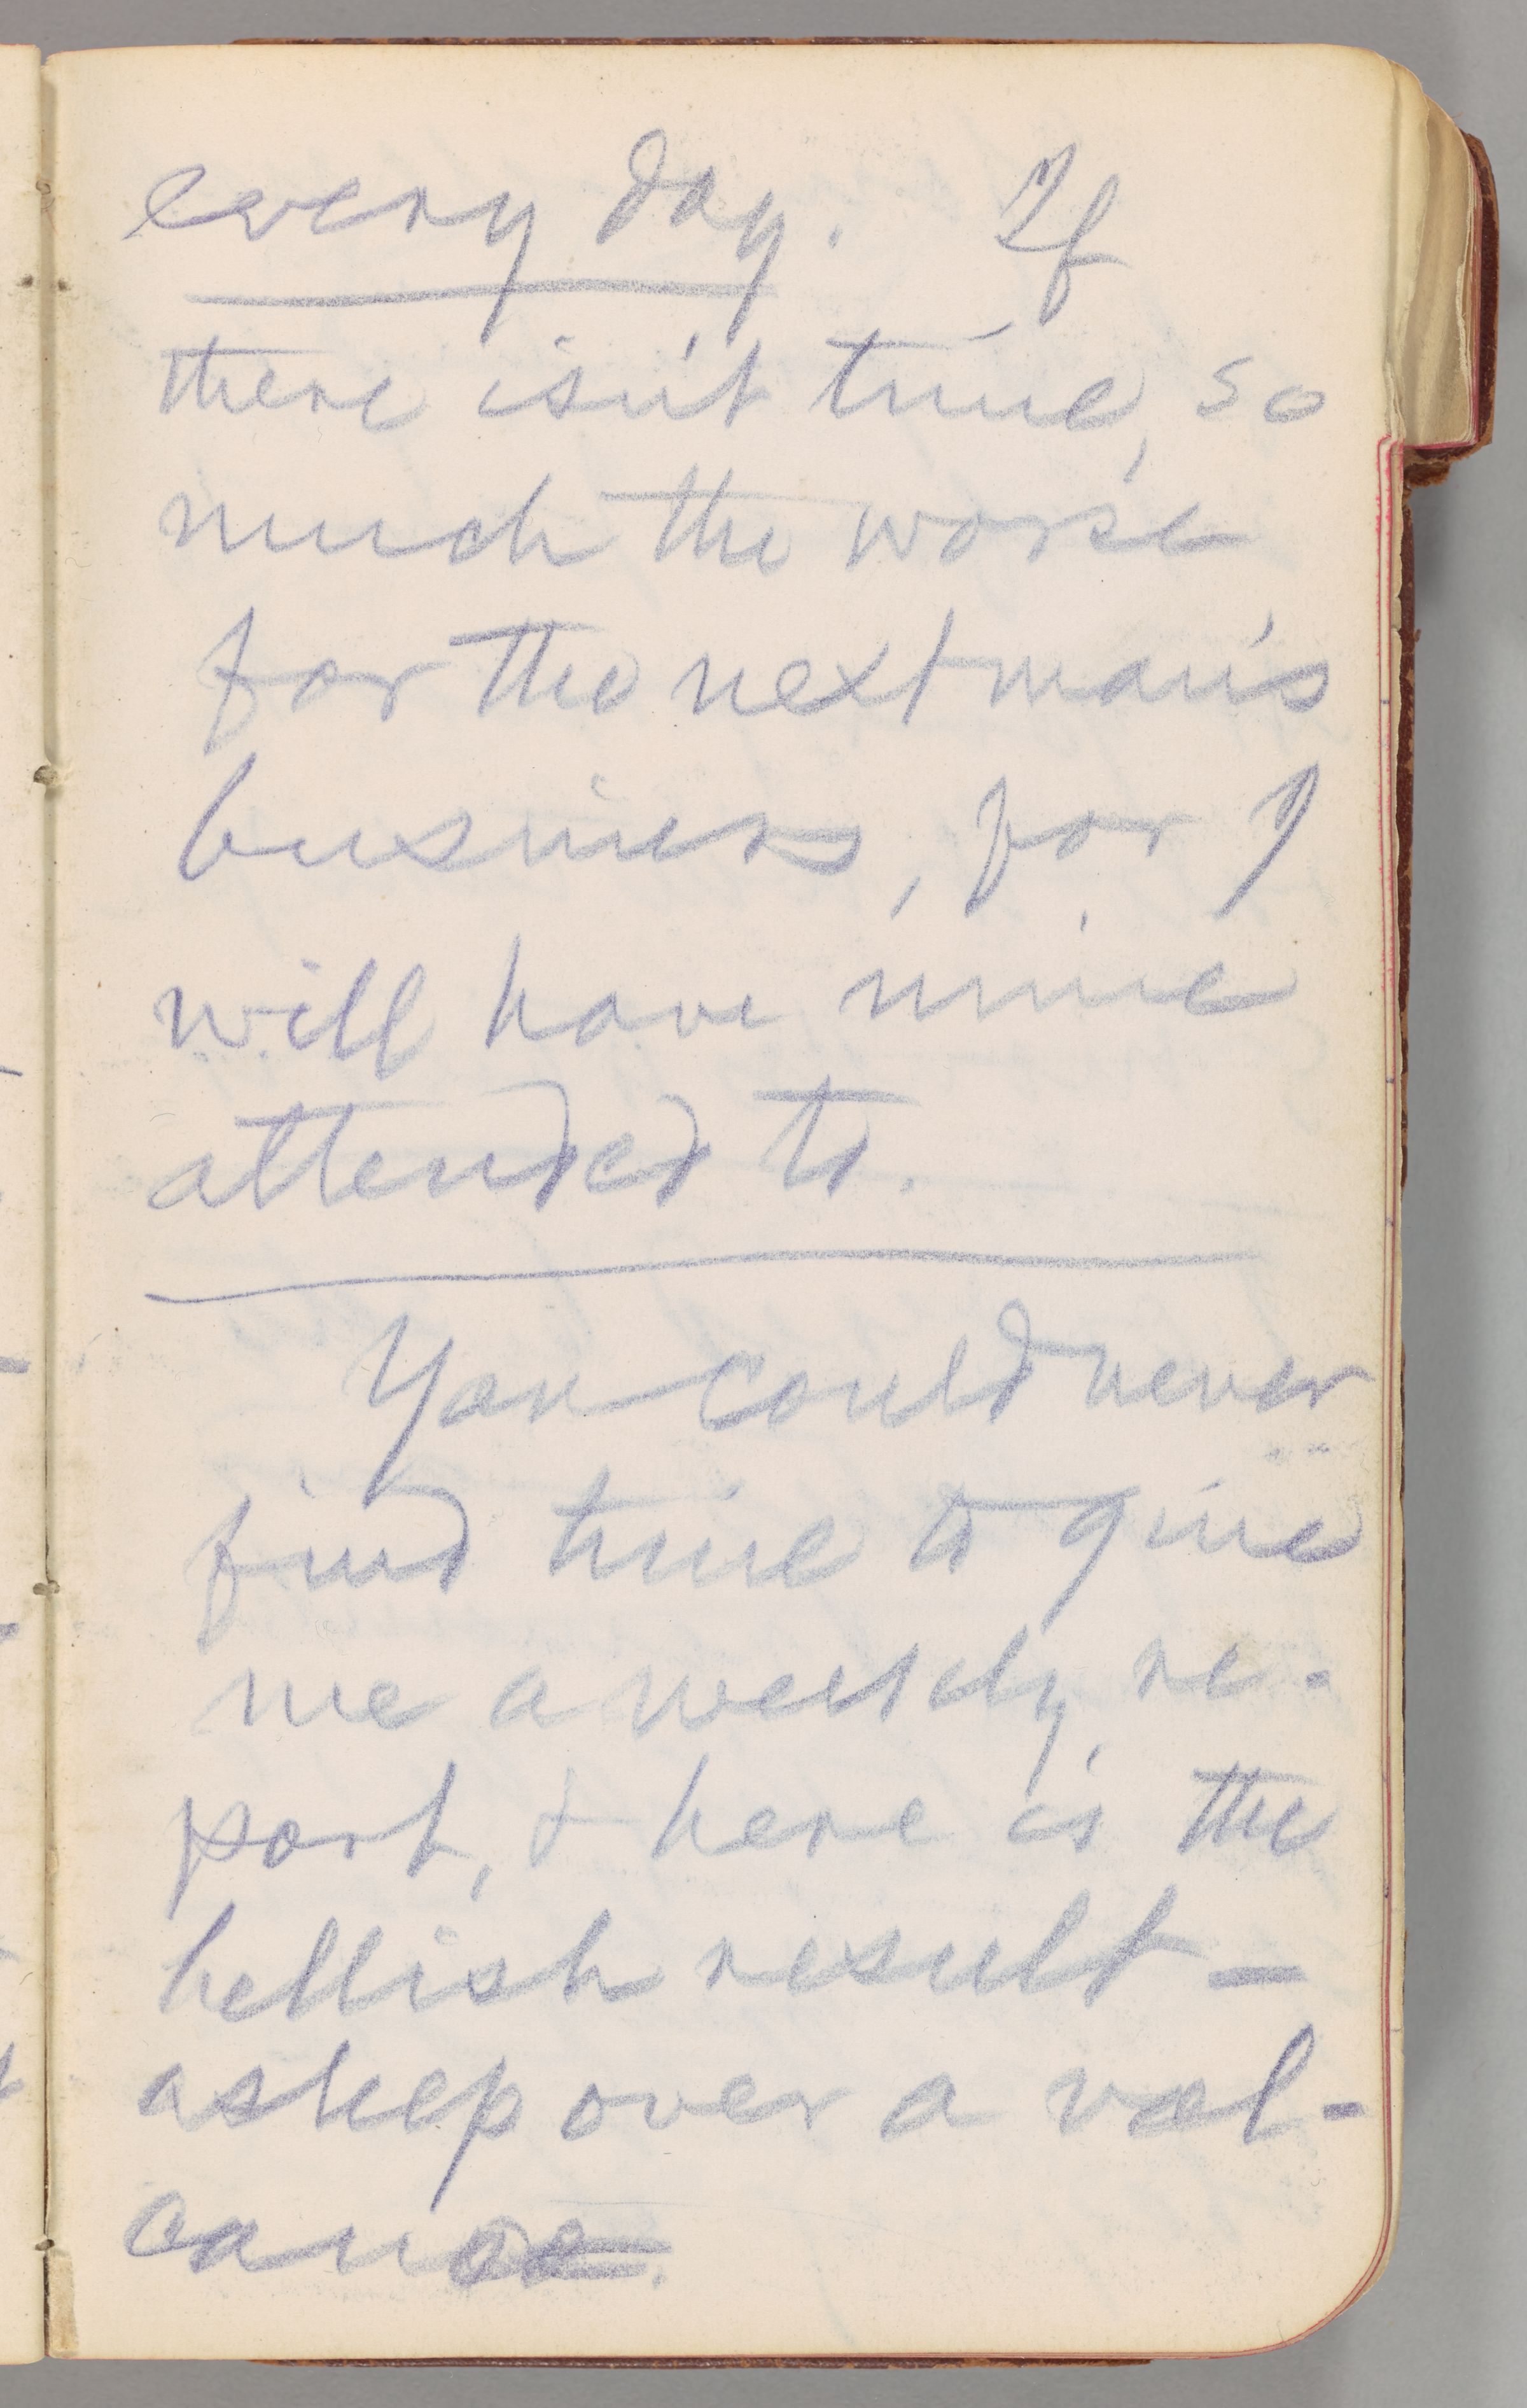 every day. If
there isn't time, so
much the worse
for the next man's
business, for I
will have mine
attended to.
You could never
find time to give
me a weekly re-
port, & here is the
hellish result —
asleep over a vol-
cano.